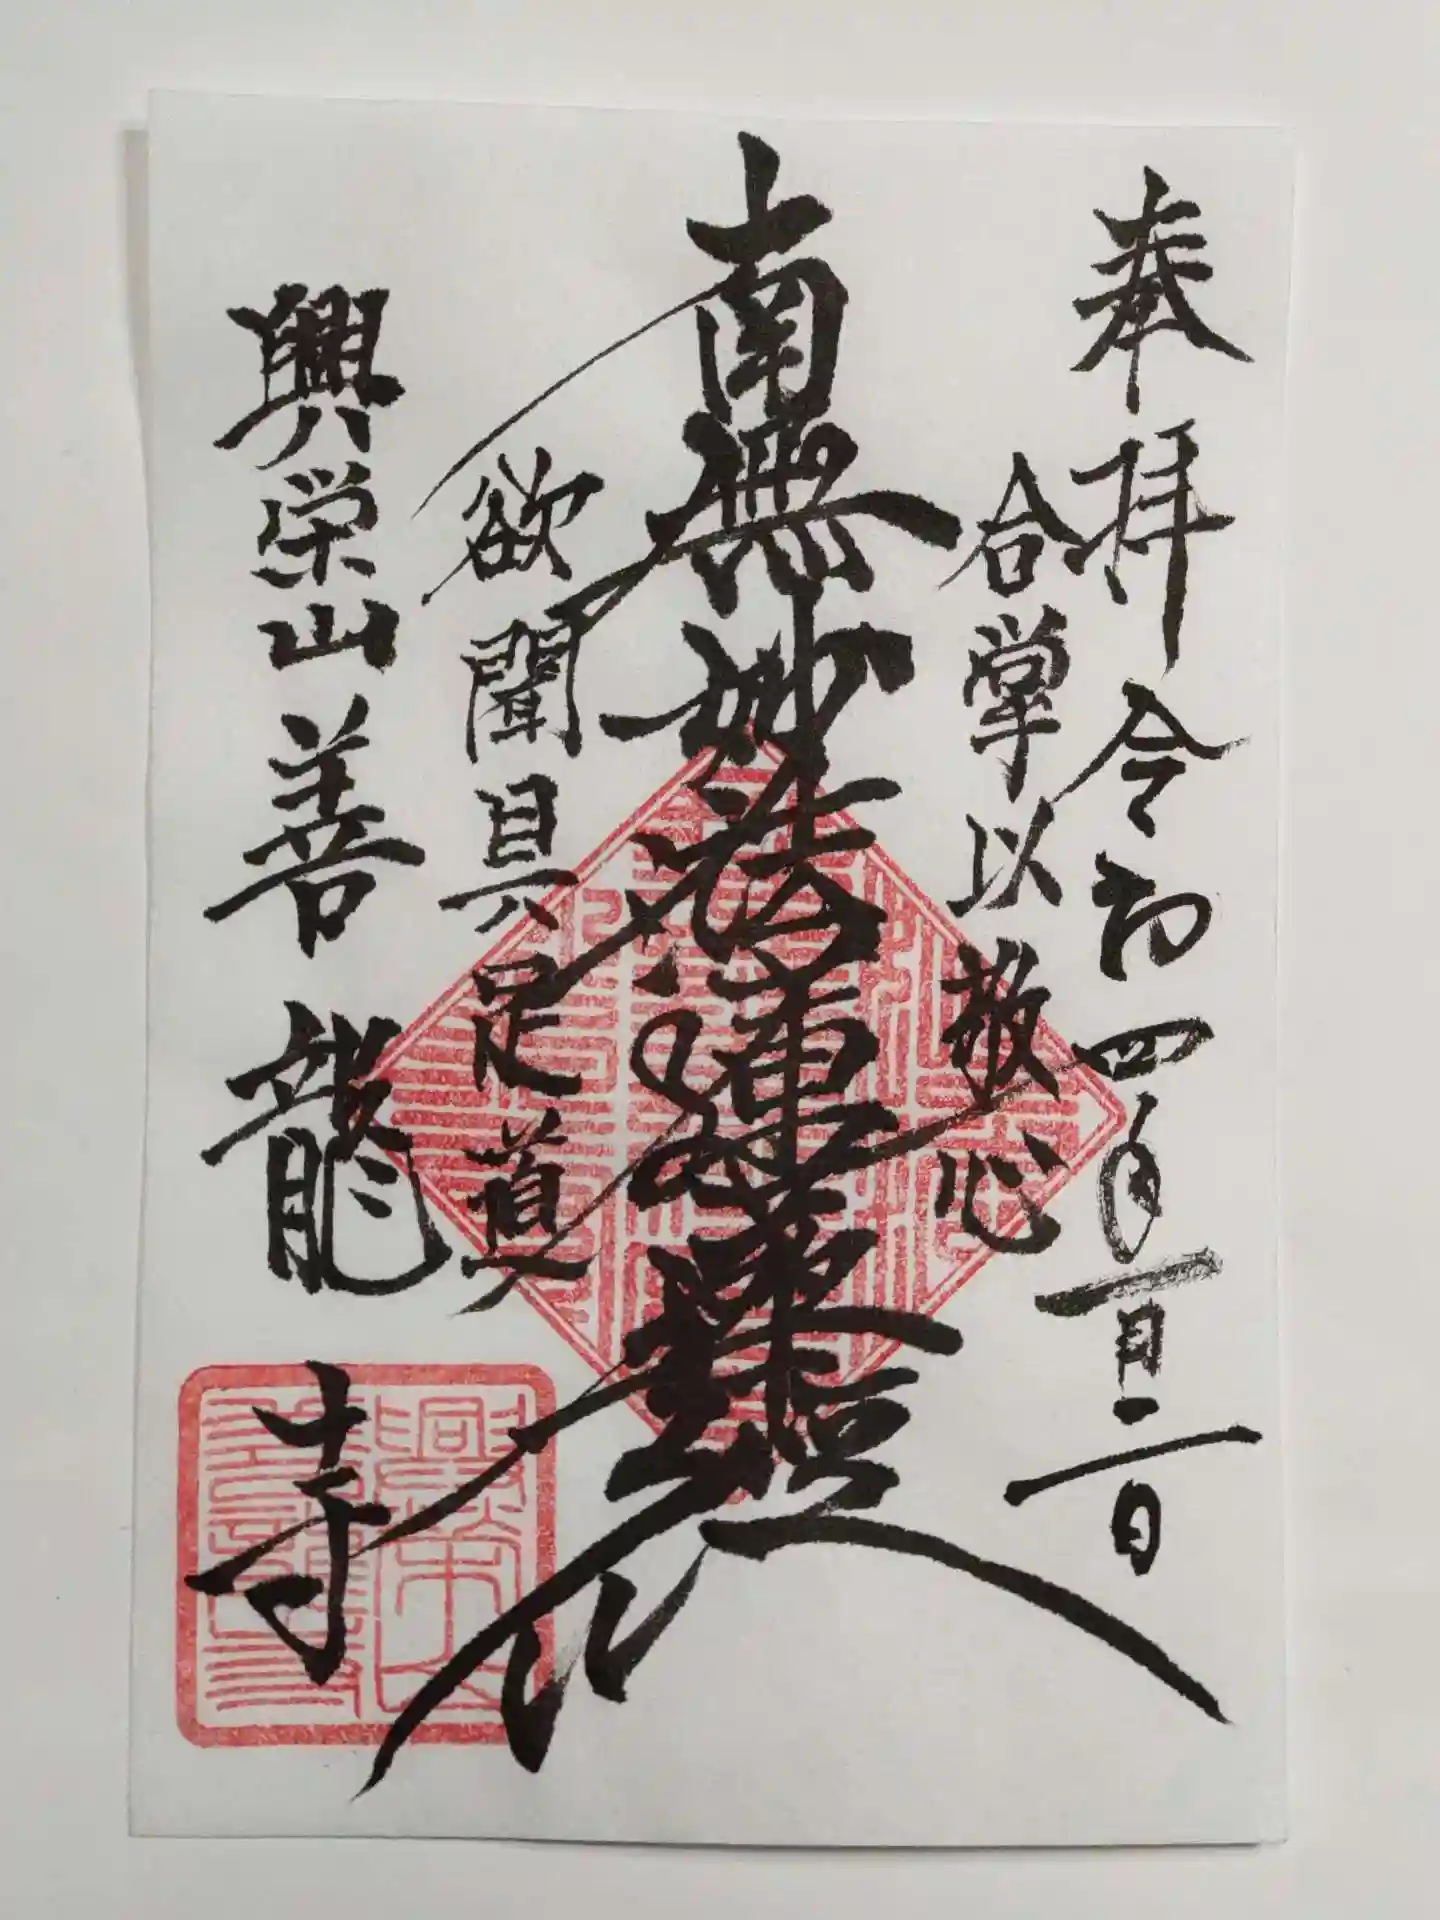 奉拝 令和四年一月二日
合掌以敬心
南無妙法蓮華経
欲聞具足道
興栄山 善龍寺